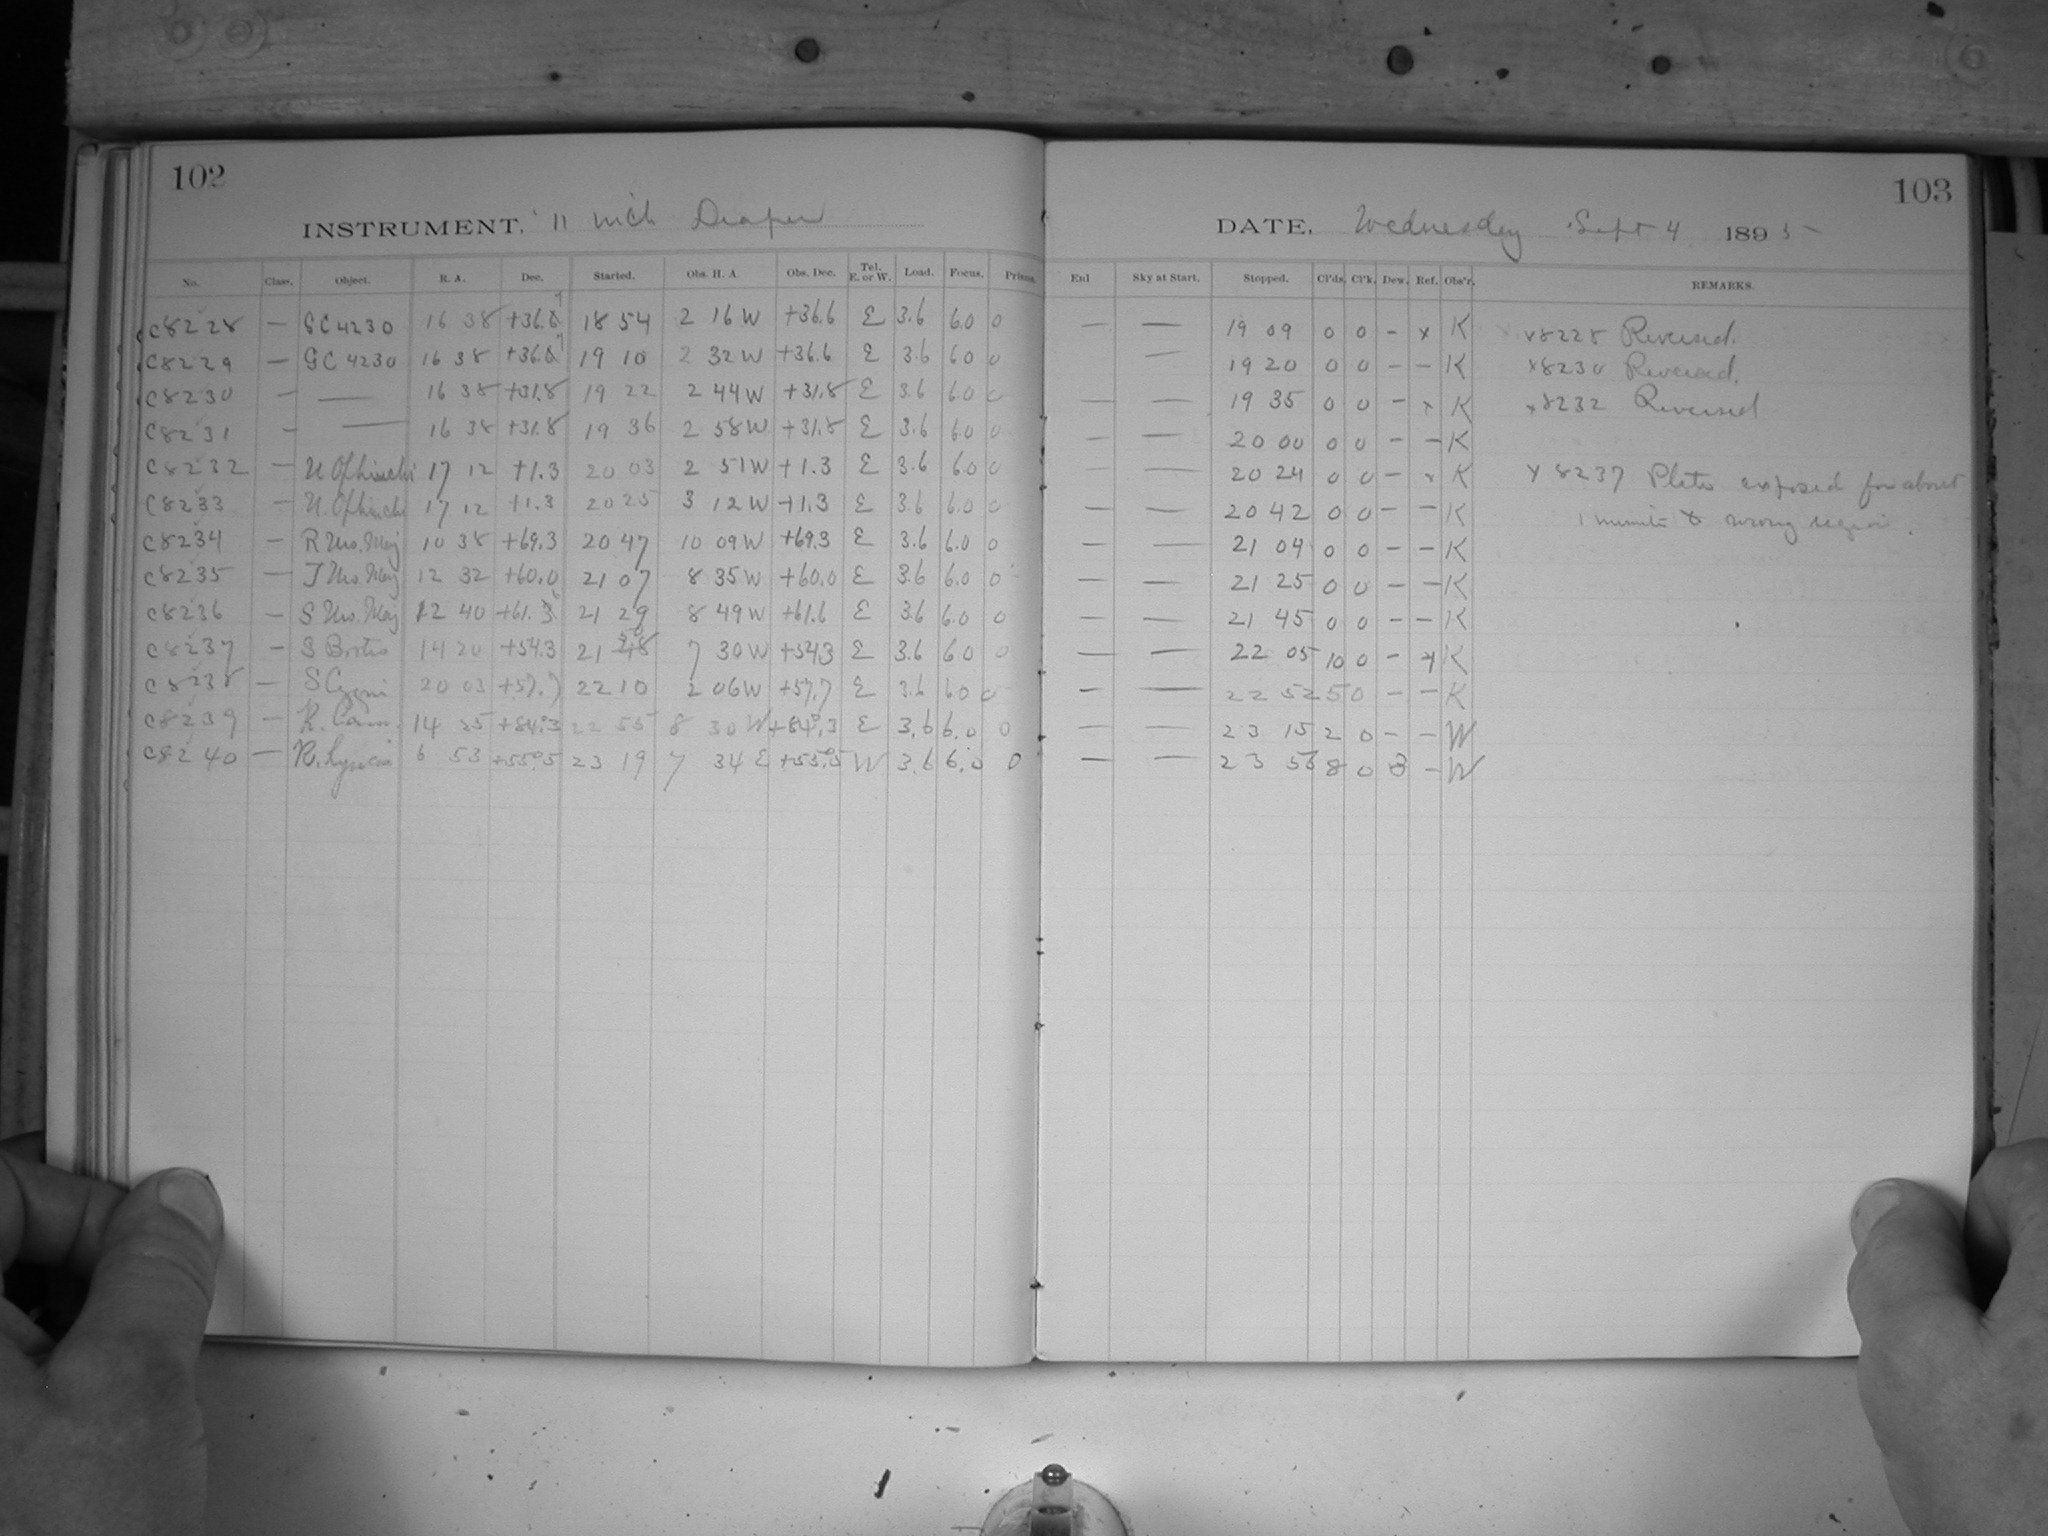 102
INSTRUMENT. 11 inch Draper
No. Class. Object. R. A. Dec. Started. Obs. H. A. Obs. Dec. Tel. E. or W. Load. Focus. Prisms.
C8228 — GC 4230 16 38 +36.6 18 54 2 16 W +36.6 E 3.6 6.0 0
C8229 — GC 4230 16 38 +36.6 19 10 2 32 W +36.6 E 3.6 6.0 0
C8230 — — 16 38 +31.8 19 22 2 44 W +31.8 E 3.6 6.0 0
C8231 — — 16 38 +31.8 19 36 2 58 W +31.8 E 3.6 6.0 0
C8232 — U Ophiuchi 17 12 +1.3 20 03 2 51 W +1.3 E 3.6 6.0 0
C8233 — U. Ophiuchi 17 12 +1.3 20 25 3 12 W +1.3 E 3.6 6.0 0
C8234 — R Urs. Maj 10 38 +69.3 20 47 10 09 W +69.3 E 3.6 6.0 0
C8235 — T Urs. Maj 12 32 +60.0 21 07 8 35 W +60.0 E 3.6 6.0 0
C8236 — S Urs. Maj 12 40 +61. 21 29 8 49 W +61.6 E 3.6 6.0 0
C8237 — S Bootis 14 20 +54.3 21 7 30 W +54.3 E 3.6 6.0 0
C8238 — S Cygni 20 03 +57.7 22 10 2 06 W +57.7 E 3.6 6.0 0
C8239 — R. Cam. 14 25 +84.3 22 55 8 30 W +84.3 E 3.6 6.0 0
C8240 — R. Lyncis 6 53 +55.5 23 19 7 34 E +55.5 W 3.6 6.0 0
103
DATE. Wednesday Sept 4 1895
Enl Sky at Start. Stopped. Cl'ds. Cl'k. Dew. Ref. Obs'r. REMARKS.
— — 19 09 0 0 – x K x8228 Reversed.
— 19 20 0 0 – – K x8230 Reversed.
— — 19 35 0 0 – x K x8232 Reversed
— — 20 00 0 0 – – K
— — 20 24 0 0 – x K x 8237 Plate exposed for about
— — 20 42 0 0 – – K 1 minute to wrong region.
— — 21 04 0 0 – – K
— — 21 25 0 0 – – K
— — 21 45 0 0 – – K
— — 22 05 10 0 – x K
— — 22 52 5 0 – – K
— — 23 15 2 0 – – W
— — 23 8 0 – W